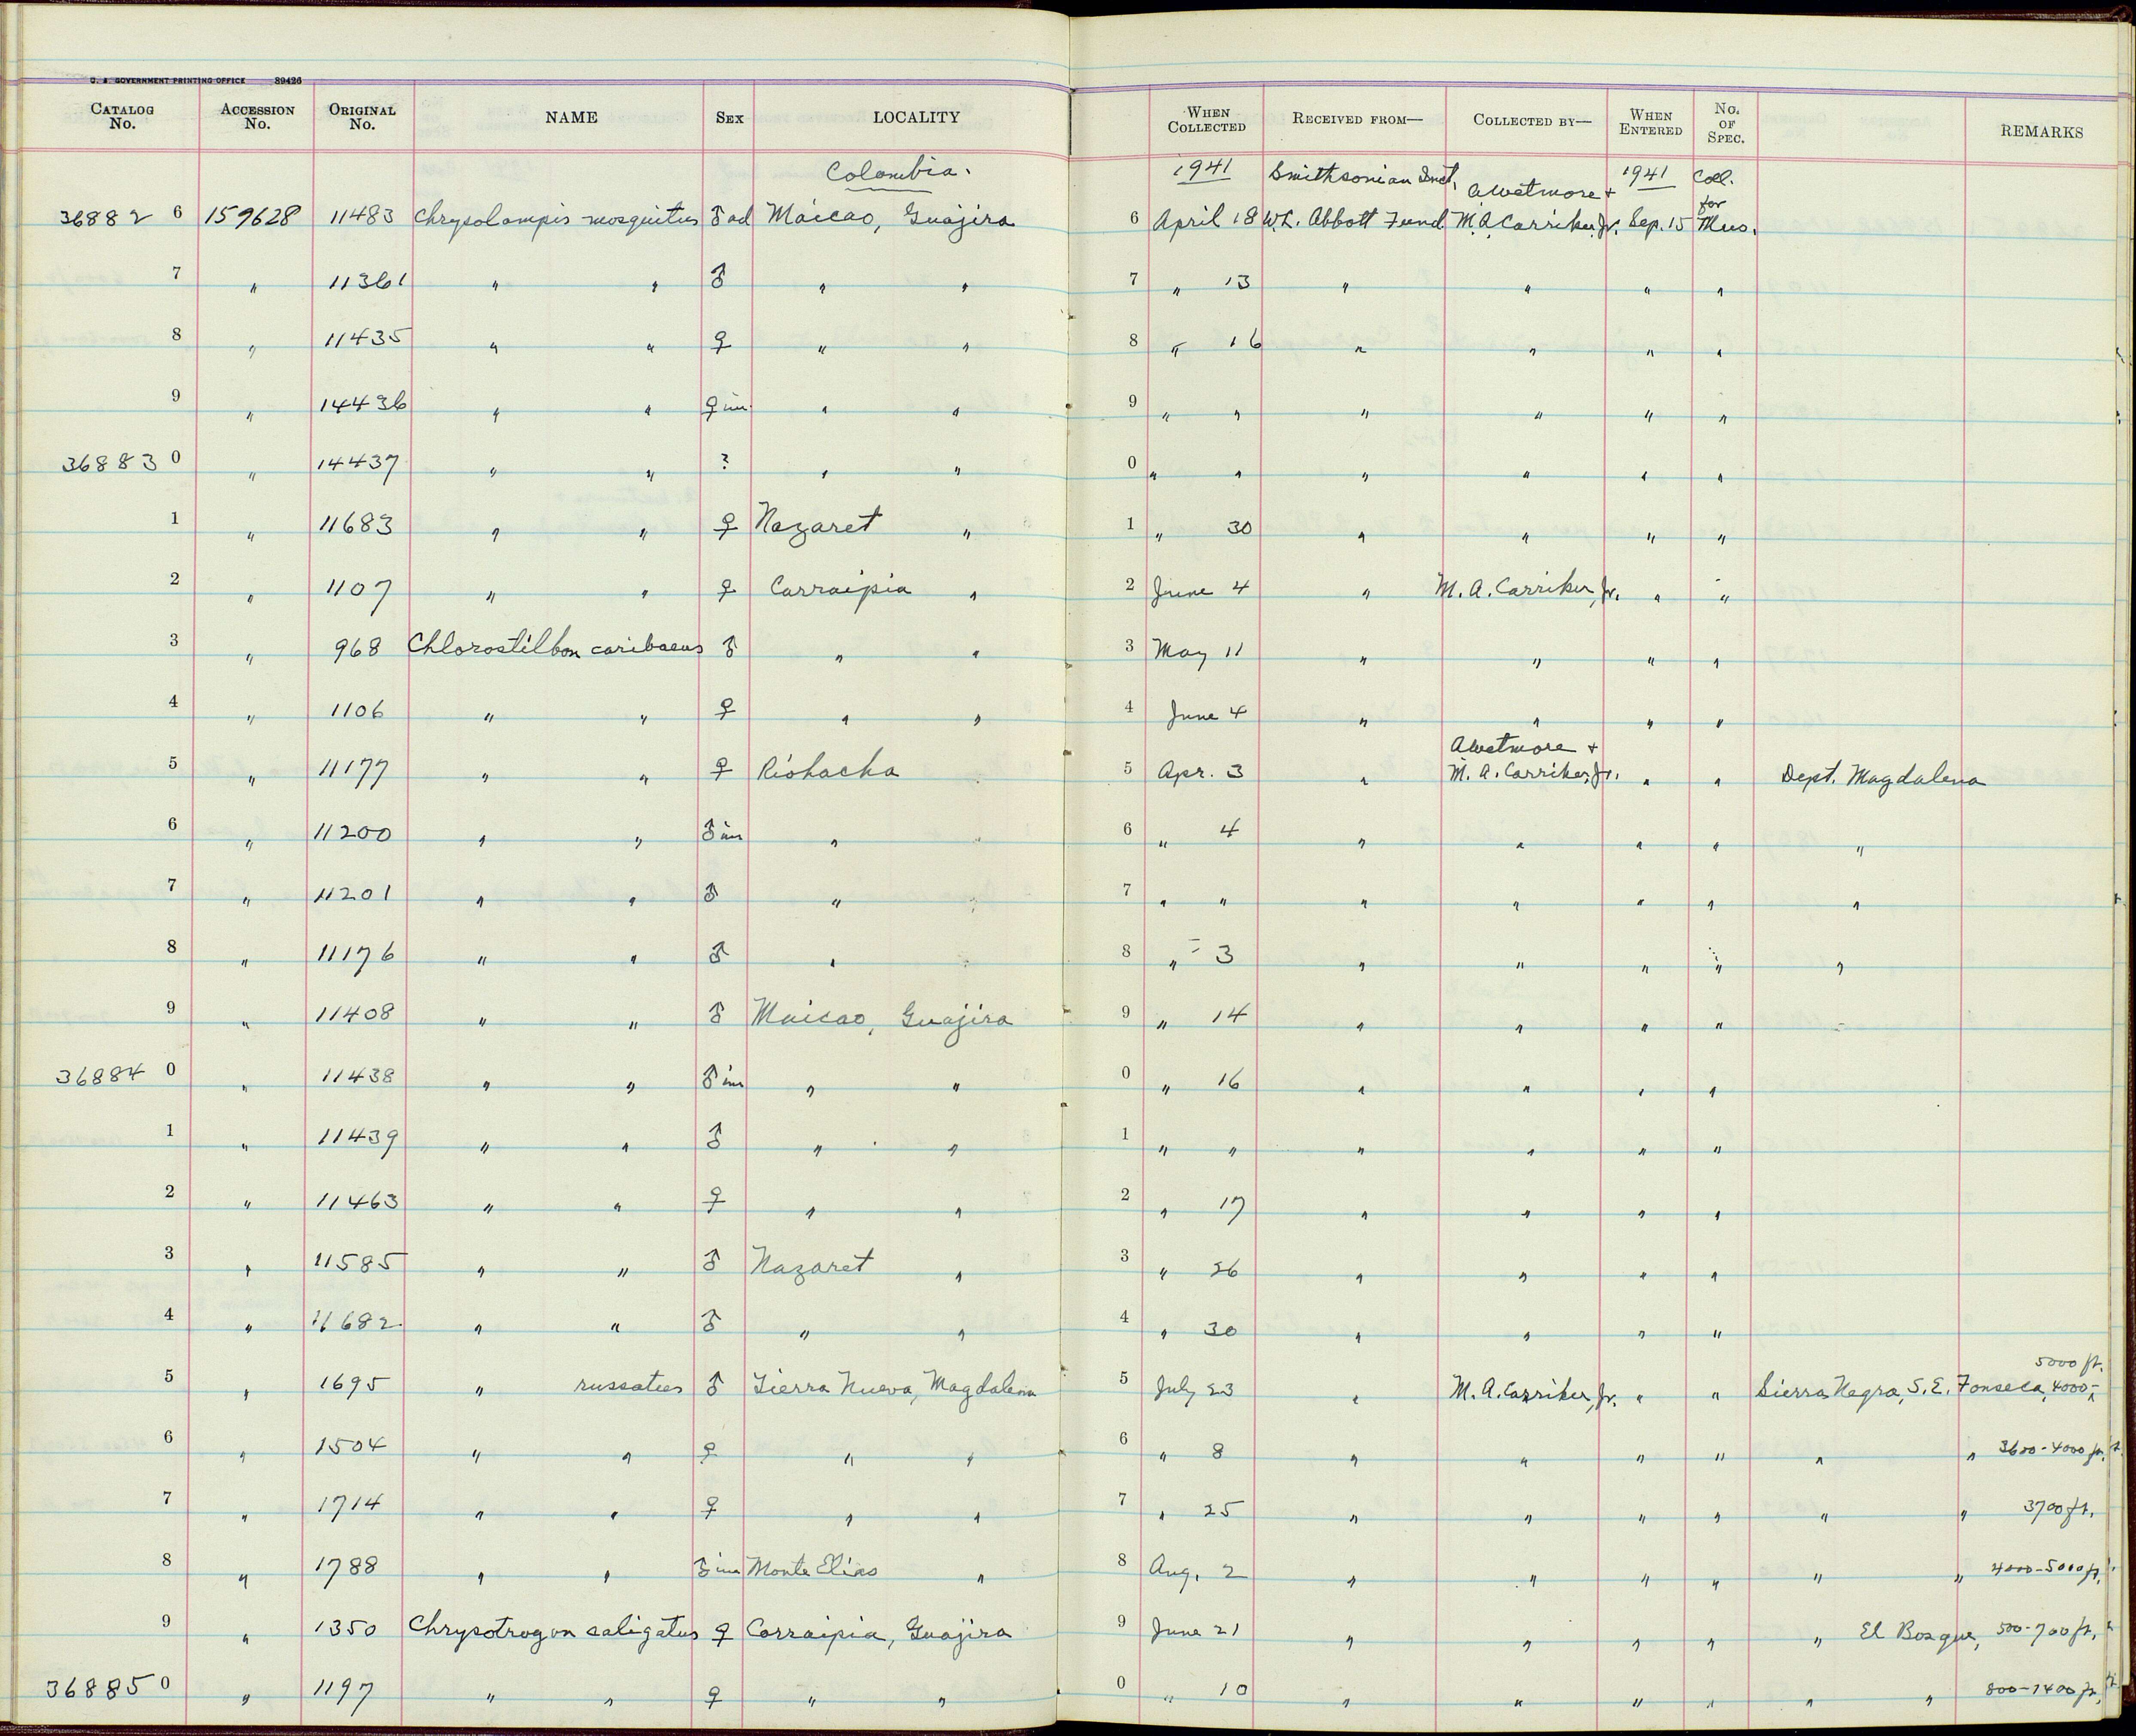 U. S. GOVERNMENT PRINTING OFFICE 89426
CATALOG No. ACCESSION No. ORIGINAL No. NAME SEX LOCALITY WHEN COLLECTED RECEIVED FROM— COLLECTED BY— WHEN ENTERED No. OF SPEC. REMARKS
Colombia. 1941 Smithsonian Inst. A Wetmore + 1941 Coll. for
36882 6 159628 11483 Chrysolampis mosquitus ♂ ad Maicao, Guajira 6 April 18 W.L. Abbott Fund M.A. Carriker, Jr. Sep. 15 Mus.
7 " 11361 " " ♂ " " 7 " 13 " " " "
8 " 11435 " " ♀ " " 8 " 16 " " " "
9 " 14436 " " ♀ im. " " 9 " " " " " "
36883 0 " 14437 " " ? " " 0 " " " " " "
1 " 11683 " " ♀ Nazaret " 1 " 30 " " " "
2 " 1107 " " ♀ Carraipia " 2 June 4 " M. A. Carriker, Jr. " "
3 " 968 Chlorostilbon caribaeus ♂ " " 3 May 11 " " " "
4 " 1106 " " ♀ " " 4 June 4 " " " "
A Wetmore +
5 " 11177 " " ♀ Riohacha 5 Apr. 3 " M. A. Carriker, Jr. " " Dept. Magdalena
6 " 11200 " " ♂ im " 6 " 4 " " " " "
7 " 11201 " " ♂ " 7 " " " " " " "
8 " 11176 " " ♂ " 8 " 3 " " " " "
9 " 11408 " " ♂ Maicao, Guajira 9 " 14 " " " "
36884 0 " 11438 " " ♂ im " " 0 " 16 " " " "
1 " 11439 " " ♂ " " 1 " " " " " "
2 " 11463 " " ♀ " " 2 " 17 " " " "
3 " 11585 " " ♂ Nazaret " 3 " 26 " " " "
4 " 11682 " " ♂ " " 4 " 30 " " " "
5000 ft.
5 " 1695 " russatus ♂ Sierra Nueva, Magdalena 5 July 23 " M. A. Carriker, Jr. " " Sierra Negra, S.E. Fonseca, 4000-
6 " 1504 " " ♀ " " 6 " 8 " " " " " " 3600-4000 ft.
7 " 1714 " " ♀ " " 7 " 25 " " " " " " 3700 ft.
8 " 1788 " " ♂ im Monte Elias " 8 Aug. 2 " " " " " " 4000-5000 ft.
9 " 1350 Chrysotrogon caligatus ♀ Carraipia, Guajira 9 June 21 " " " " " El Bosque, 500-700 ft.
36885 0 " 1197 " " ♀ " " 0 " 10 " " " " " " 800-1400 ft.